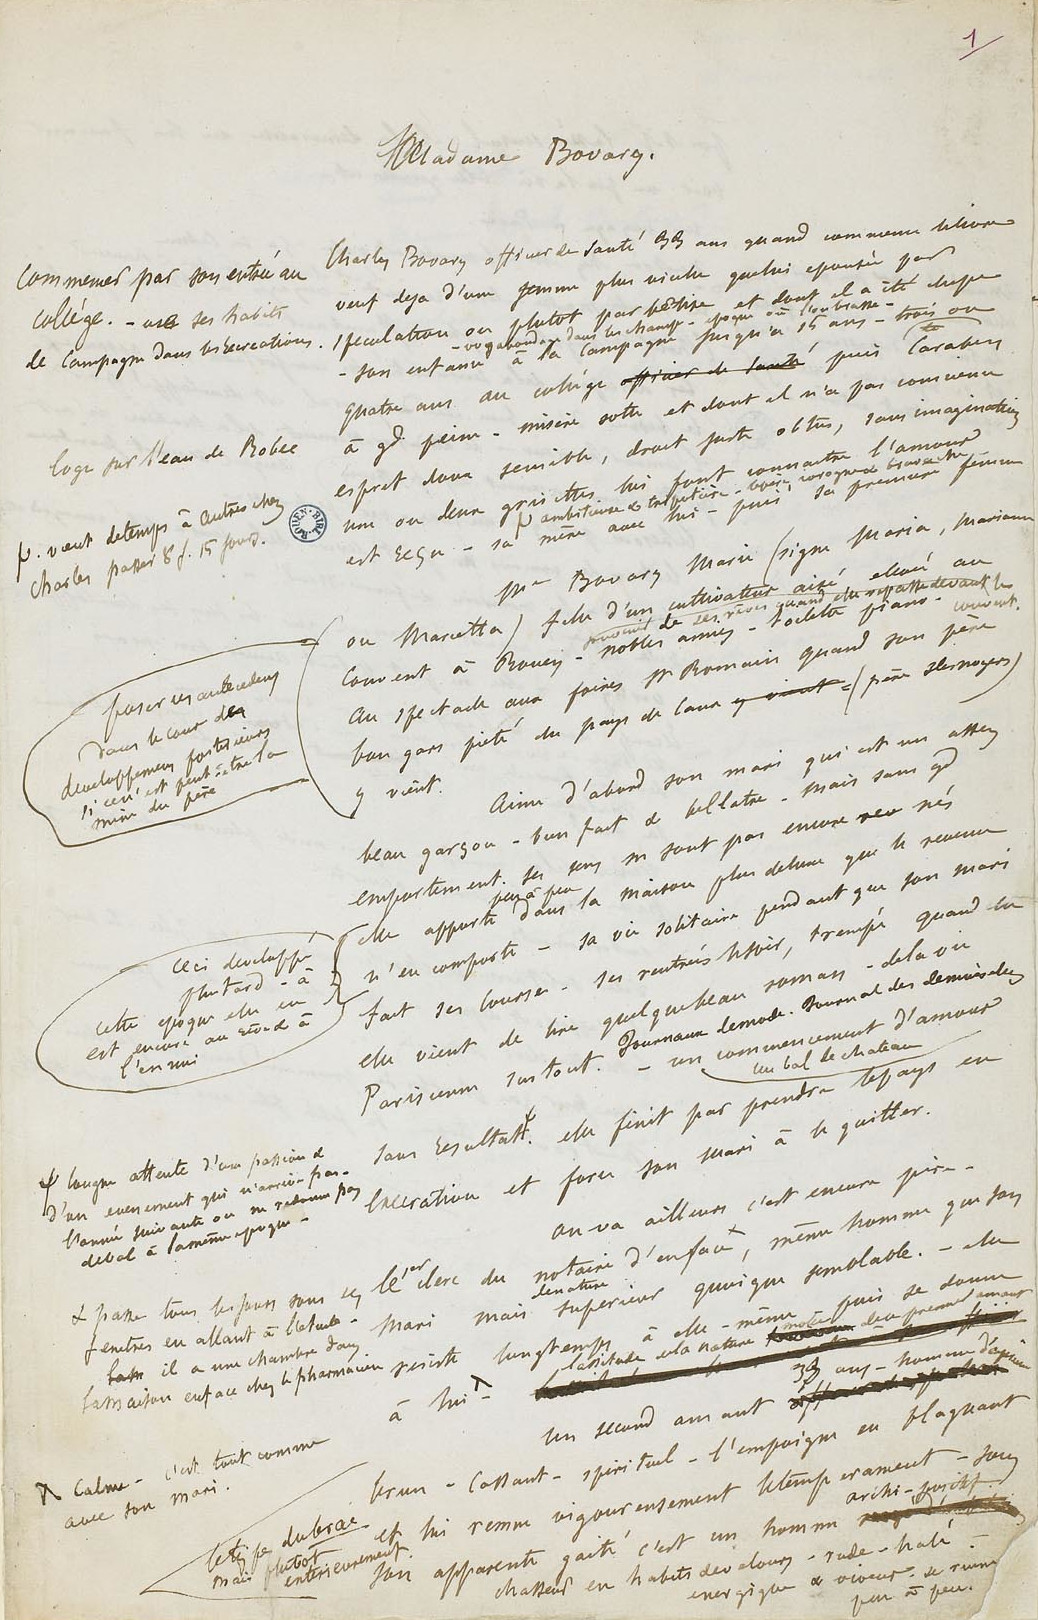 1
Madame Bovary.
Charles Bovary officier de santé 33 ans quand commence le livre
veuf deja d'une femme plus vieille que lui epousée par
speculation ou plutot par bêtise et dont il a été dupe
- vagabondage dans les champs - epoque où l'on brasse -
- son enfance à la campagne jusqu'à 15 ans - trois ou
quatre ans au collége officier de santé puis Carabin
à gd peine - misère sotte et dont il n'a pas conscience
esprit doux sensible, droit juste obtus, sans imagination
une ou deux grisettes lui font connaitre l'amour
est reçu - sa mère avec lui - puis sa première femme
Commencer par son entrée au
collège. - avec ses habits
de Campagne dans les recreations.
loge sur l'eau de Robec
p. vient de temps à autres chez
Charles passer 8 j. 15 jours.
Me Bovary Marie (signe Maria, Marianne
ou Marietta) fille d'un cultivateur aisé elevée au
couvent.
Couvent à Rouen - nobles amies - toilette piano -
au spectacle aux foires St Romain quand son père
bon gars piété du pays de Caux y vient = (père Desnoyers)
y vient.
poser ces antecedens
dans le cour des
developpemens posterieurs
si ce n'est peut-être la
mère du père
Aime d'abord son mari qui est un assez
beau garçon - bien fait & bellatre - mais sans gd
emportement. ses sens ne sont pas encore nés
peu à peu
elle apporte dans la maison plus de luxe que le revenu
n'en comporte - sa vie solitaire pendant que son mari
fait ses courses - ses rentrées le soir, trempé quand elle
elle vient de lire quelque beau roman - de la vie
Parisienne surtout. Journaux de mode. Journal des demoiselles
- un commencement d'amour
au bal de chateau
sans resultat. elle finit par prendre le pays en
execration et force son mari à le quitter.
ceci developpé
plus tard - à
cette epoque elle en
est encore au rêve & à
l'ennui
longue attente d'une passion &
d'un evenement qui n'arrive pas -
l'année suivante on ne redonne pas
de bal à la même epoque -
on va ailleurs c'est encore pire -
le 1er clerc du notaire d'en face, même homme que son
de nature
mari mais superieur quoique semblable. - elle
resiste longtemps à elle-même puis se donne
à lui -
passe tous les jours sous ses
fenetres en allant à l'etude -
il a une chambre dans
la maison en face chez le pharmacien
Calme - c'est tout comme
avec son mari.
un second amant 33 ans - homme d'experience
brun - cassant - spirituel - l'empoigne en blaguant
et lui remue vigoureusement le temperament - sous
son apparente gaité c'est un homme archi-positif.
chasseur en habits de velours - rude - halé -
energique & viveur - se ruine
peu à peu.
le type dubrae
mais plutot
exterieurement.